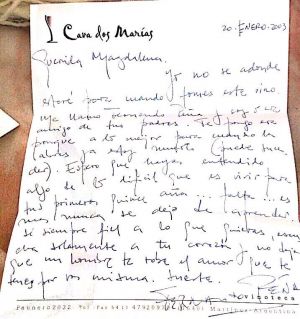 Cava dos Marías
20-ENERO-2003
Querida Magdalena:
Yo no se adonde
estaré para cuando tomes este vino
Me llamo Fernando                y soy
amigo de tus padres. Te pongo
porque a lo mejor para cuando la
abras ya estoy muerto (puede suce
der). Espero que hayas entendido
algo de lo difícil que es vivir para
tus primeros quince años...
nunca se dejo de aprender.
sé siempre fiel a lo que quieras,
solamente a tu corazón y no dejes
que un hombre te robe el amor que te
tengas por vos misma. Suerte.
FERNA
PENA
vinoteca
Faunero 2022 Tel. Fax 541) Martínez - Argentina